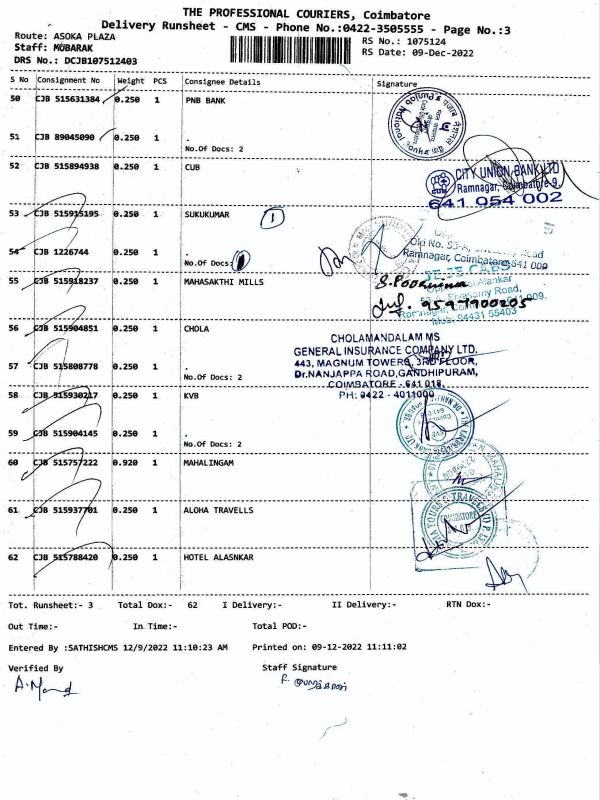 THE PROFESSIONAL COURIERS, Coimbatore
Delivery Runsheet - CMS - Phone No.:0422-3505555 - Page No.:3
Route: ASOKA PLAZA
RS No.: 1075124
Staff: MUBARAK
RS Date: 09-Dec-2022
DRS No.: DCJB107512403
S No Consignment No Weight PCS Consignee Details Signature
50 CJB 515631384 0.250 1 PNB BANK
51 CJB 89045090 0.250 1 .
No.Of Docs: 2
52 CJB 515894938 0.250 1 CUB
CITY UNION BANK LTD
Ramnagar, Coimbatore 9.
641 054 002
53 CJB 515915195 0.250 1 SUKUKUMAR 1
54 CJB 1226744 0.250 1 .
No.Of Docs:
Ramnagar, Coimbatore-641 009
55 CJB 515918237 0.250 1 MAHASAKTHI MILLS
S. Poornima
9597900205
56 CJB 515904851 0.250 1 CHOLA
CHOLAMANDALAM MS
GENERAL INSURANCE COMPANY LTD.
443, MAGNUM TOWERS, 3RD FLOOR,
Dr.NANJAPPA ROAD, GANDHIPURAM,
COIMBATORE - 641 018.
PH: 0422 - 4011000
57 CJB 515808778 0.250 1 .
No.Of Docs: 2
58 CJB 515930217 0.250 1 KVB
59 CJB 515904145 0.250 1 .
No.Of Docs: 2
60 CJB 515757222 0.920 1 MAHALINGAM
61 CJB 515937701 0.250 1 ALOHA TRAVELLS
62 CJB 515788420 0.250 1 HOTEL ALASNKAR
Tot. Runsheet:- 3 Total Dox:- 62 I Delivery:- II Delivery:- RTN Dox:-
Out Time:- In Time:- Total POD:-
Entered By :SATHISHCMS 12/9/2022 11:10:23 AM Printed on: 09-12-2022 11:11:02
Verified By Staff Signature